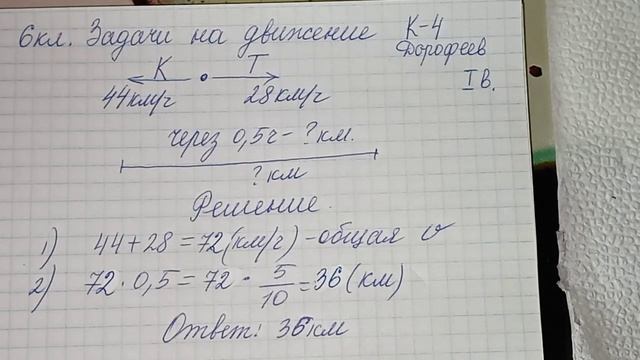 6кл. Задачи на движение К-4
Дорофеев
I в.
К Т
44км/г 28км/г
через 0,5г - ? км.
? км
Решение.
1) 44+28=72(км/г) - общая v
2) 72 · 0,5 = 72 · 5/10 = 36 (км)
Ответ: 36км